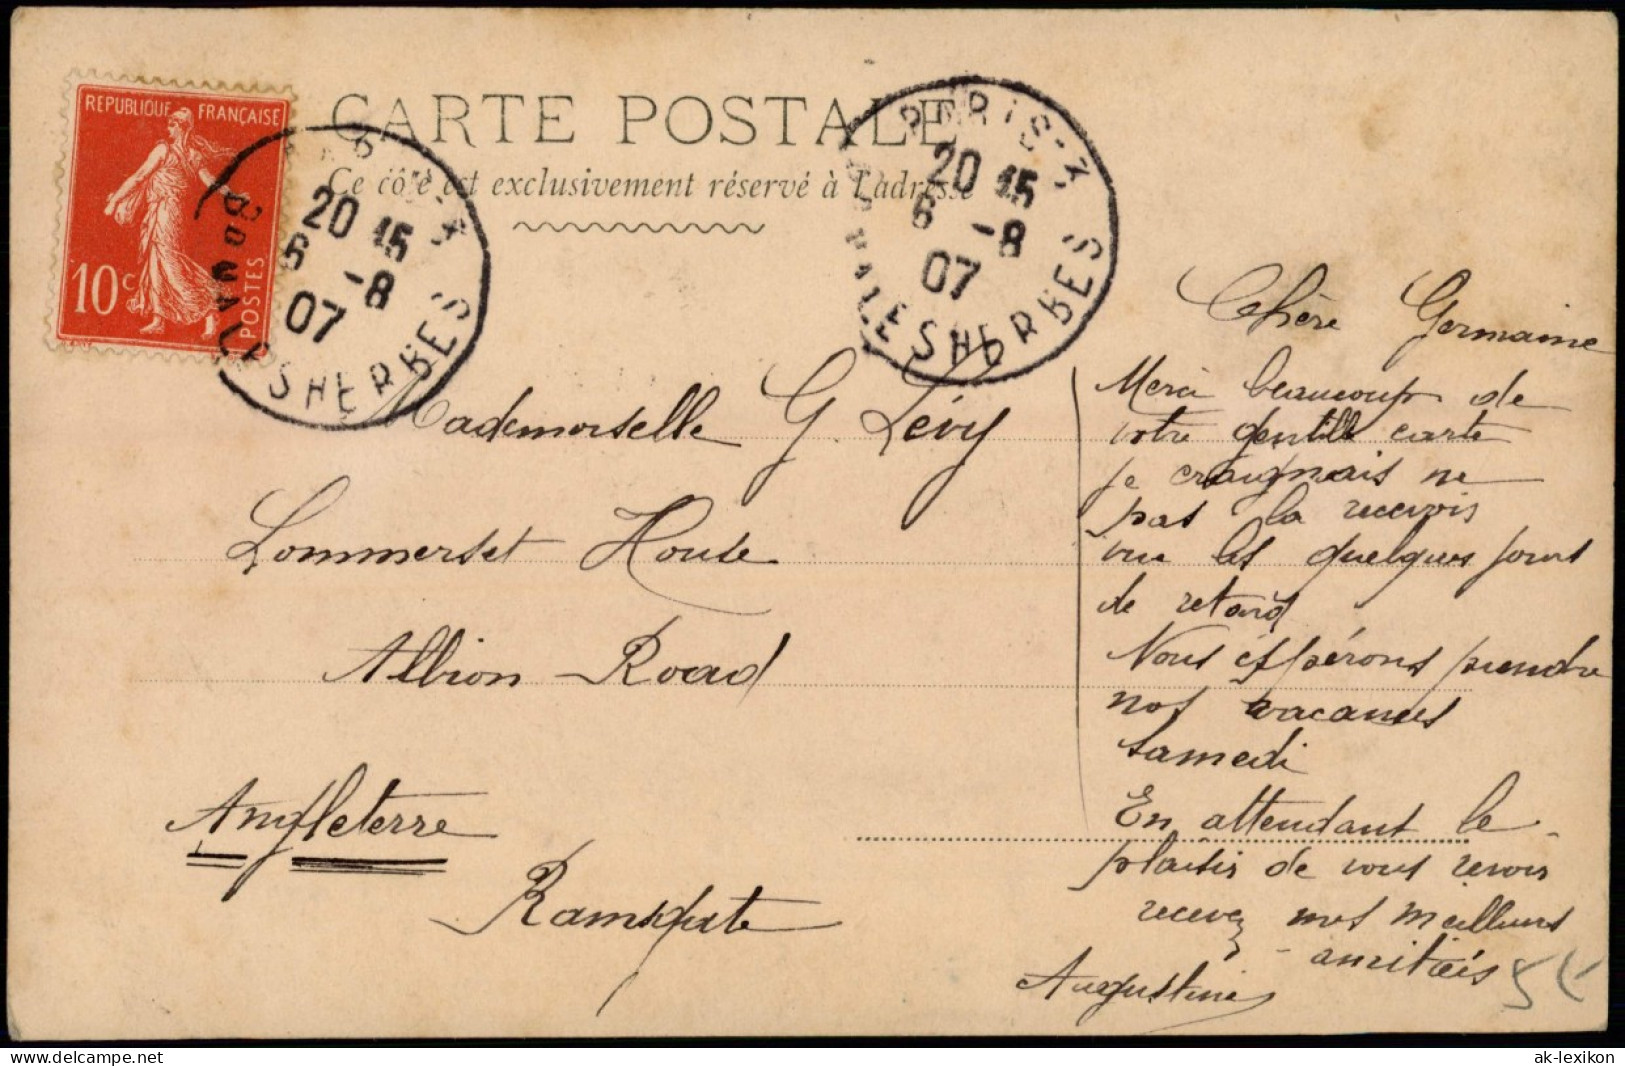 REPUBLIQUE FRANÇAISE
10c
POSTES
CARTE POSTALE
Ce côté est exclusivement réservé à l'adresse
20 15
6 -8
07
MALESHERBES
PARIS-X
20 15
6 -8
07
MALESHERBES
Mademoiselle G. Lévy
Sommerset House
Albion Road
Angleterre
Ramsgate
Chère Germaine
Merci beaucoup de
votre gentille carte
je craignais ne
pas la recevoir
vue les quelques jours
de retard
Nous éspérons prendre
nos vacances
samedi
En attendant le
plaisir de vous revoir
recevez mes meilleurs
amitiés
Augustine
ak-lexikon